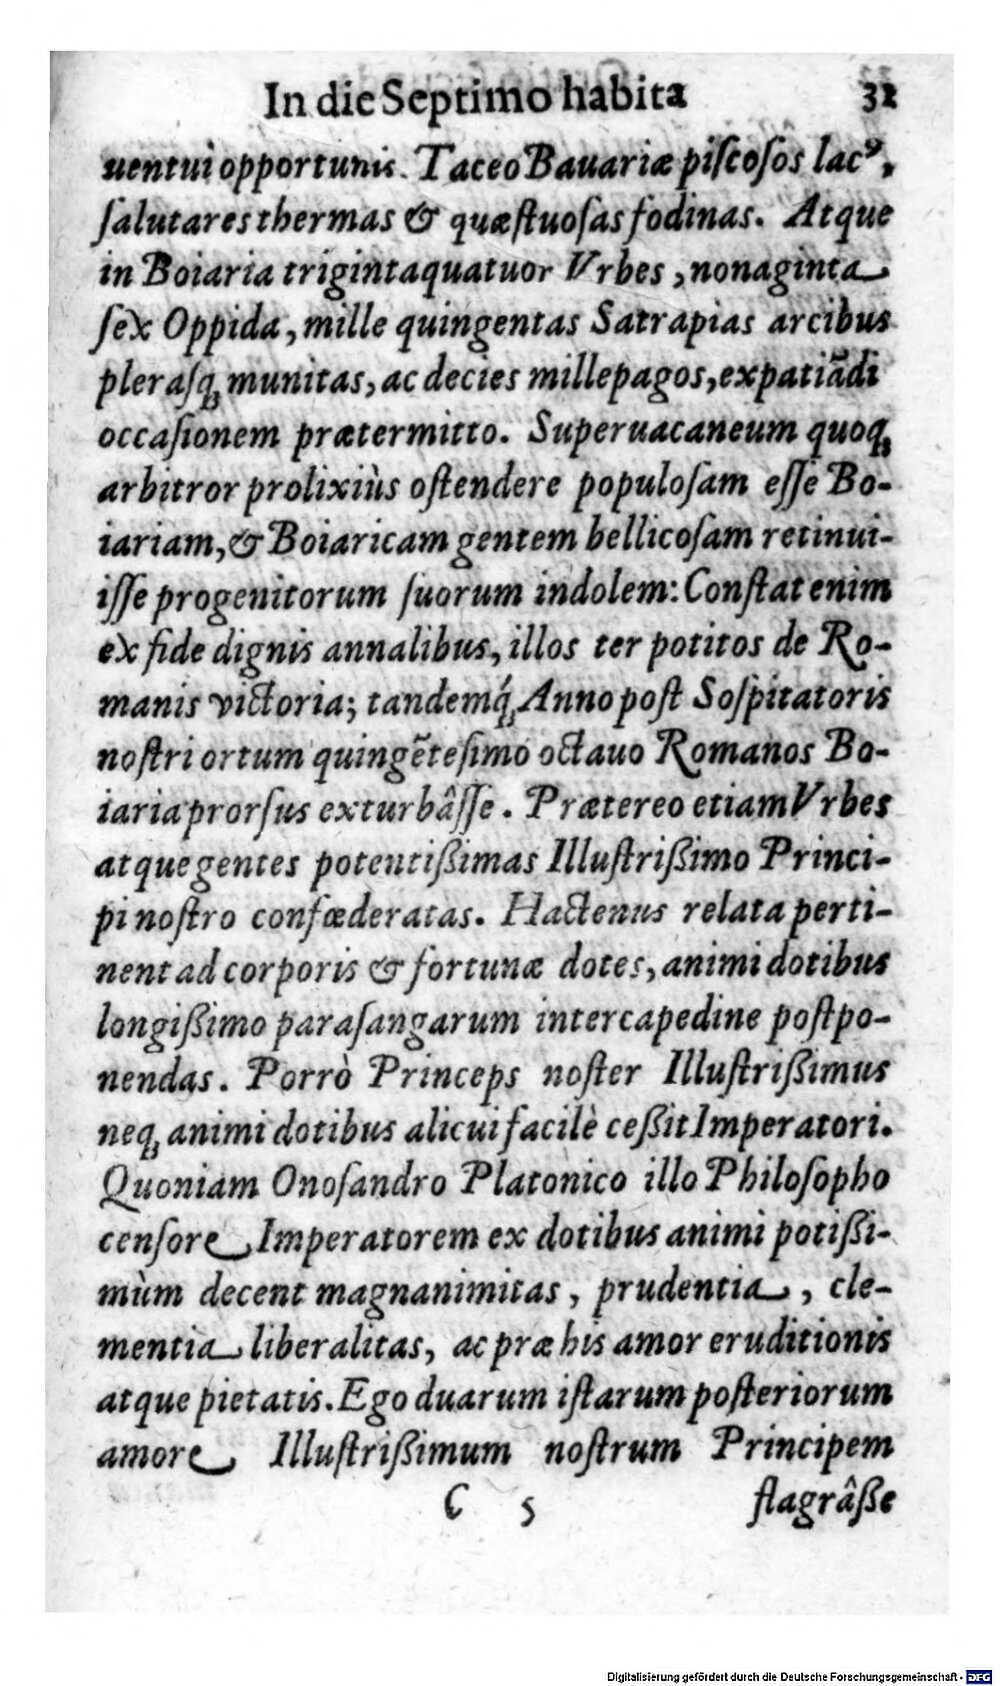 In die Septimo habita 31
uentui opportunis. Taceo Bauariæ piſcoſos lacꝰ,
ſalutares thermas & quæſtuoſas fodinas. Atque
in Boiaria trigintaquatuor Vrbes, nonaginta
ſex Oppida, mille quingentas Satrapias arcibus
pleraſq́; munitas, ac decies mille pagos, expatiãdi
occaſionem prætermitto. Superuacaneum quoq;
arbitror prolixiùs oſtendere populoſam eſſe Bo-
iariam, & Boiaricam gentem bellicoſam retinui-
iſſe progenitorum ſuorum indolem: Conſtat enim
ex fide dignis annalibus, illos ter potitos de Ro-
manis victoria; tandemq́; Anno poſt Soſpitatoris
noſtri ortum quingẽteſimo octauo Romanos Bo-
iaria prorſus exturbâſſe. Prætereo etiam Vrbes
atque gentes potentißimas Illuſtrißimo Princi-
pi noſtro confœderatas. Hactenus relata perti-
nent ad corporis & fortunæ dotes, animi dotibus
longißimo paraſangarum intercapedine poſtpo-
nendas. Porrò Princeps noſter Illuſtrißimus
neq; animi dotibus alicui facilè ceßit Imperatori.
Quoniam Onoſandro Platonico illo Philoſopho
cenſore Imperatorem ex dotibus animi potißi-
mùm decent magnanimitas, prudentia, cle-
mentia liberalitas, ac præ his amor eruditionis
atque pietatis. Ego duarum iſtarum poſteriorum
amore Illuſtrißimum noſtrum Principem
C 5 flagrâße
Digitalisierung gefördert durch die Deutsche Forschungsgemeinschaft - DFG